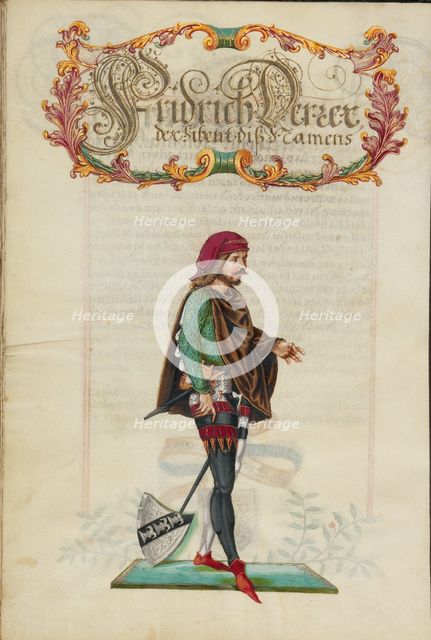 Fridrich Derrer
der sibent diß Namens
Heritage Heritage
Heritage Heritage
Heritage Heritage